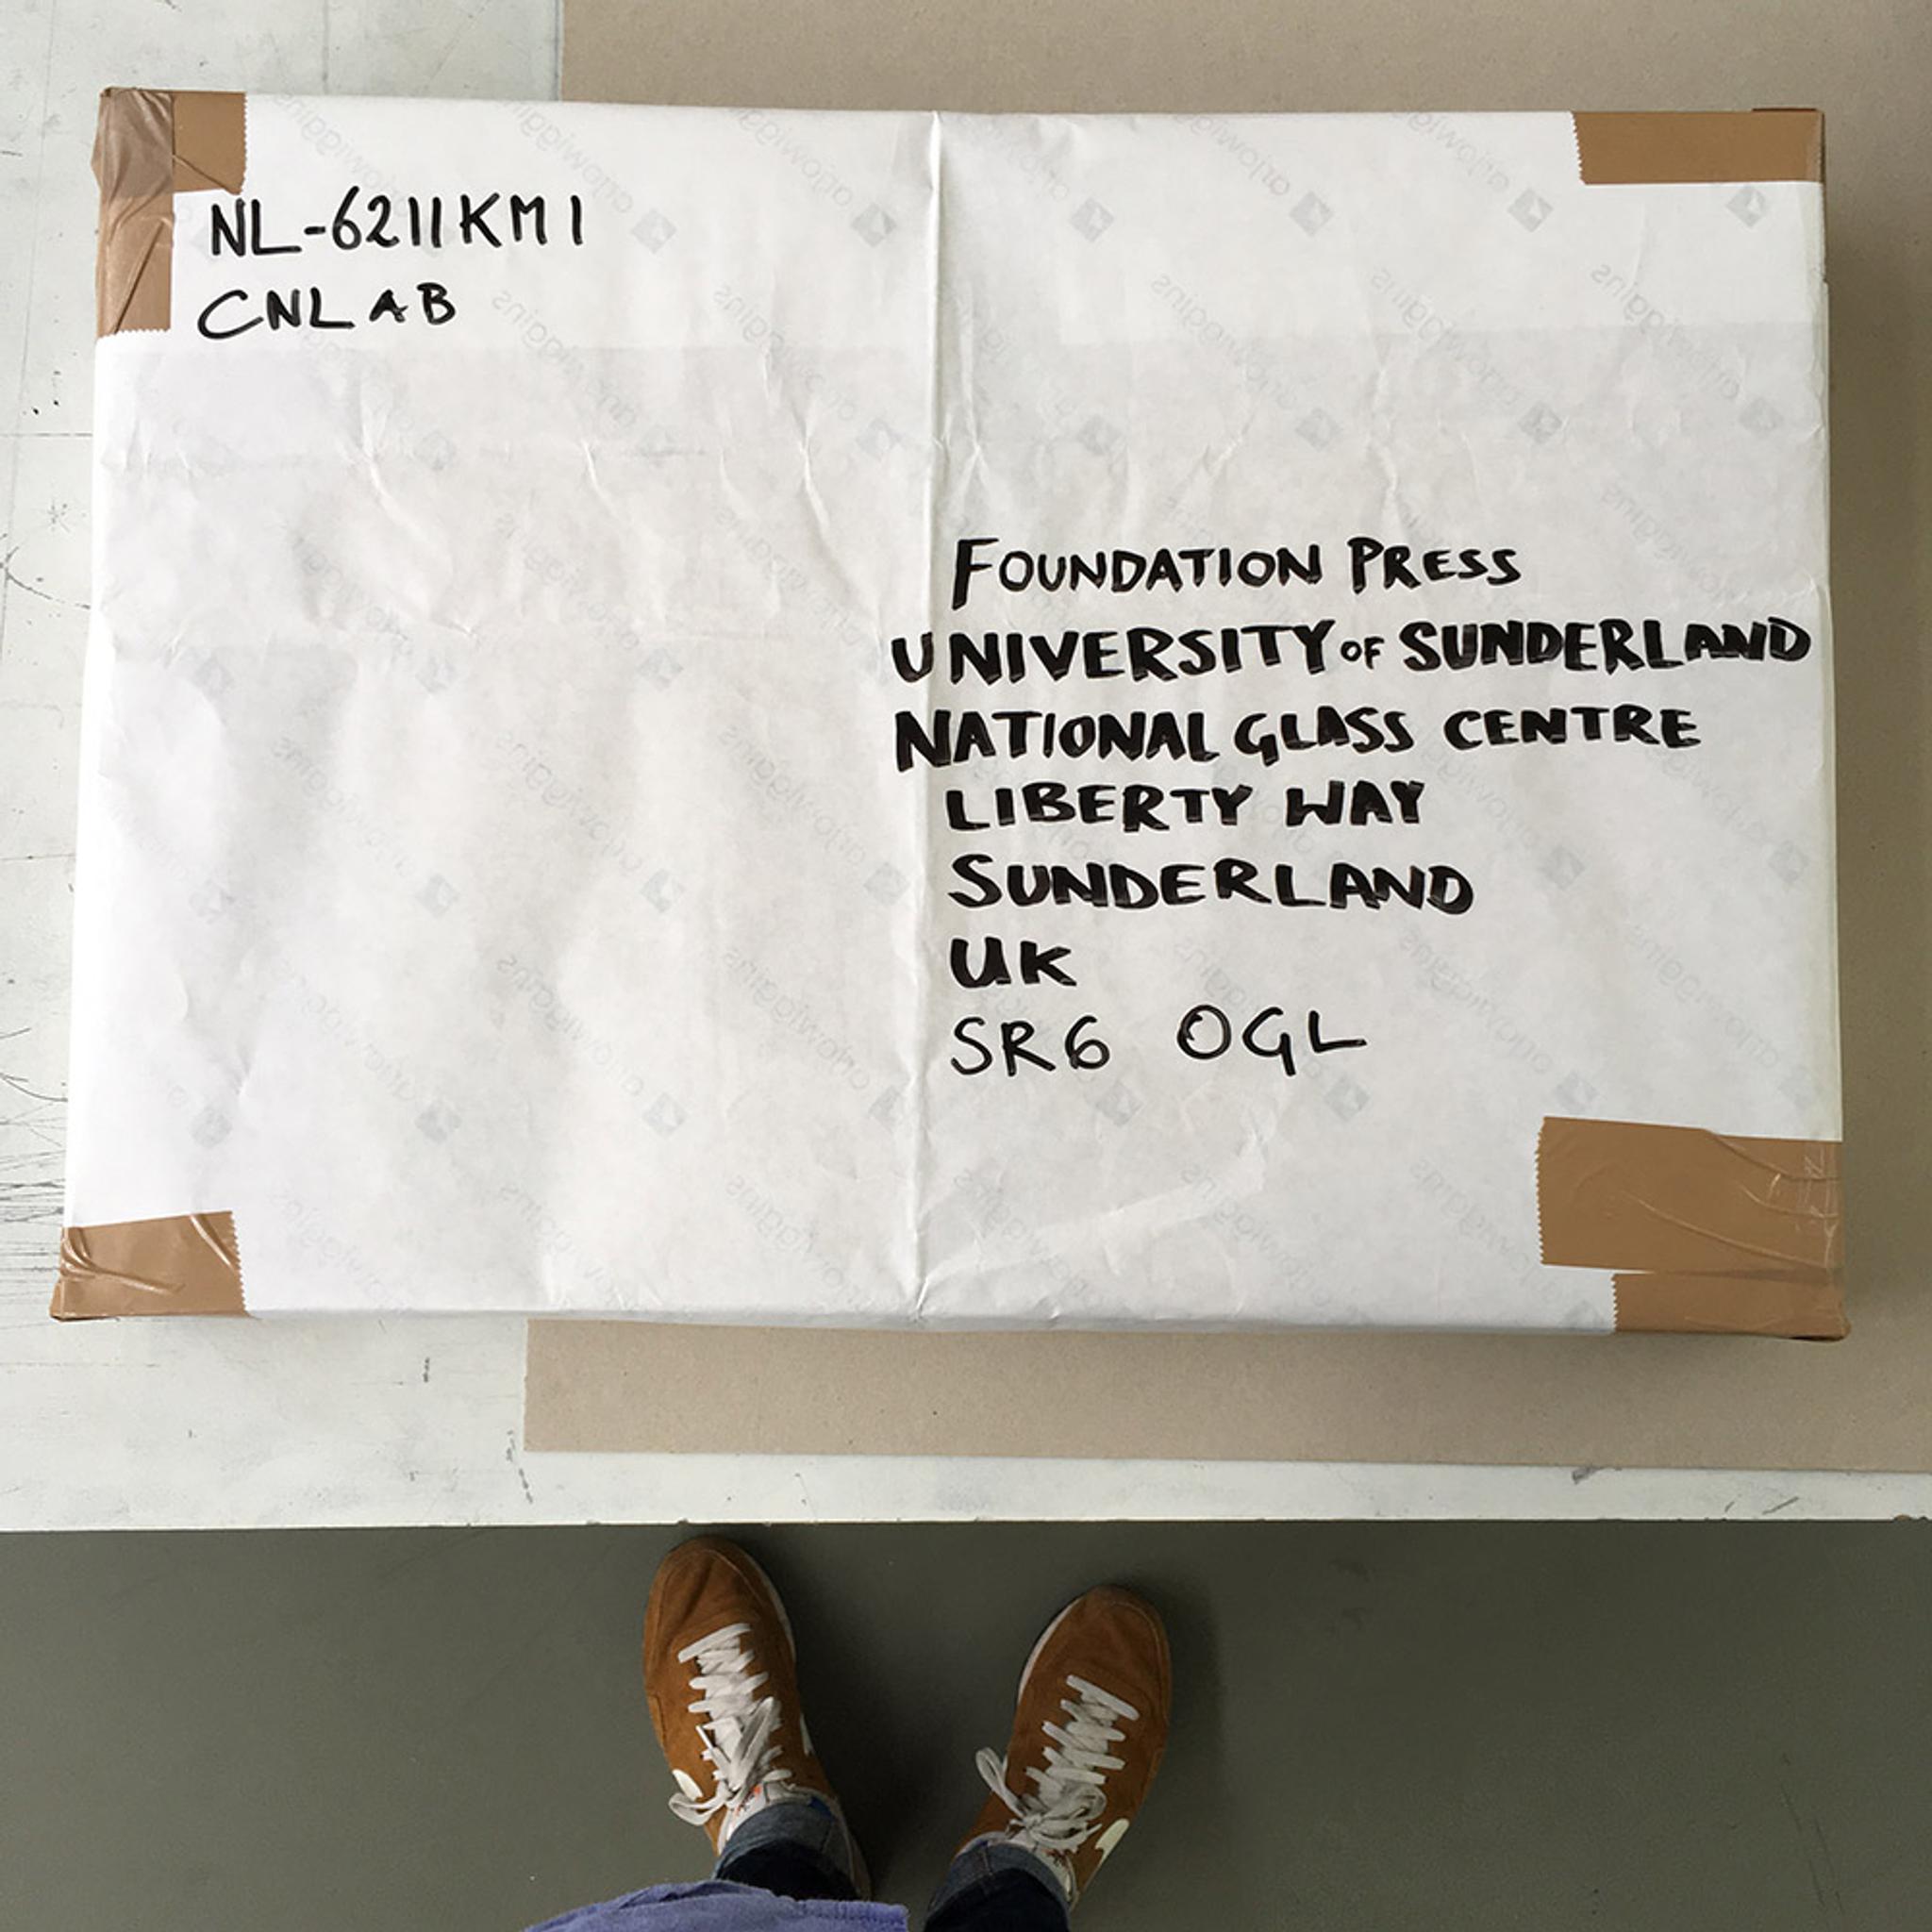 NL-6211KM1
CNLAB
FOUNDATION PRESS
UNIVERSITY OF SUNDERLAND
NATIONAL GLASS CENTRE
LIBERTY WAY
SUNDERLAND
UK
SR6 0GL